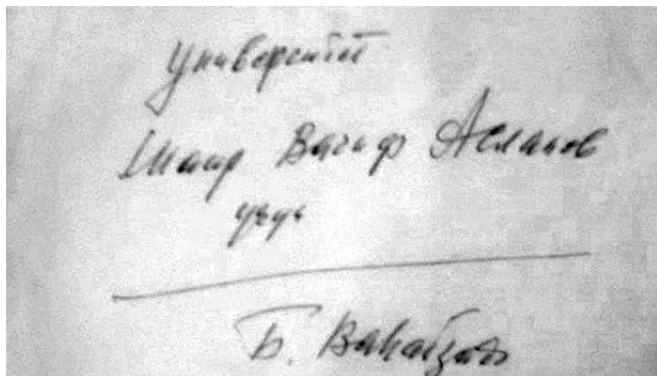 Университет
Шаир Вагиф Асланов
үчүн
Б. Ваһабзадә